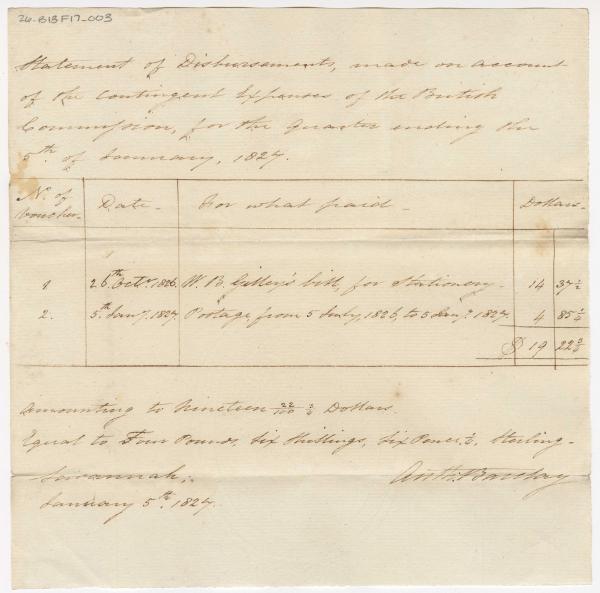 26-B13F17_003
Statement of Disbursements, made on account
of the Contingent Expenses of the British
Commission, for the Quarter ending the
5th of January, 1827.
No. of Voucher. Date. For what paid. Dollars.
1 26th Octr. 1826. W. B. Gilley's bill, for Stationery. 14 37½
2. 5th Jany. 1827. Postage, from 5 July, 1826, to 5 Jany. 1827. 4 85
$ 19 22
Amounting to Nineteen 22/100 Dollars.
Equal to Four Pounds, Six Shillings, Six Pence ½, Sterling.
Savannah,
January 5th. 1827.
Anth. Barclay